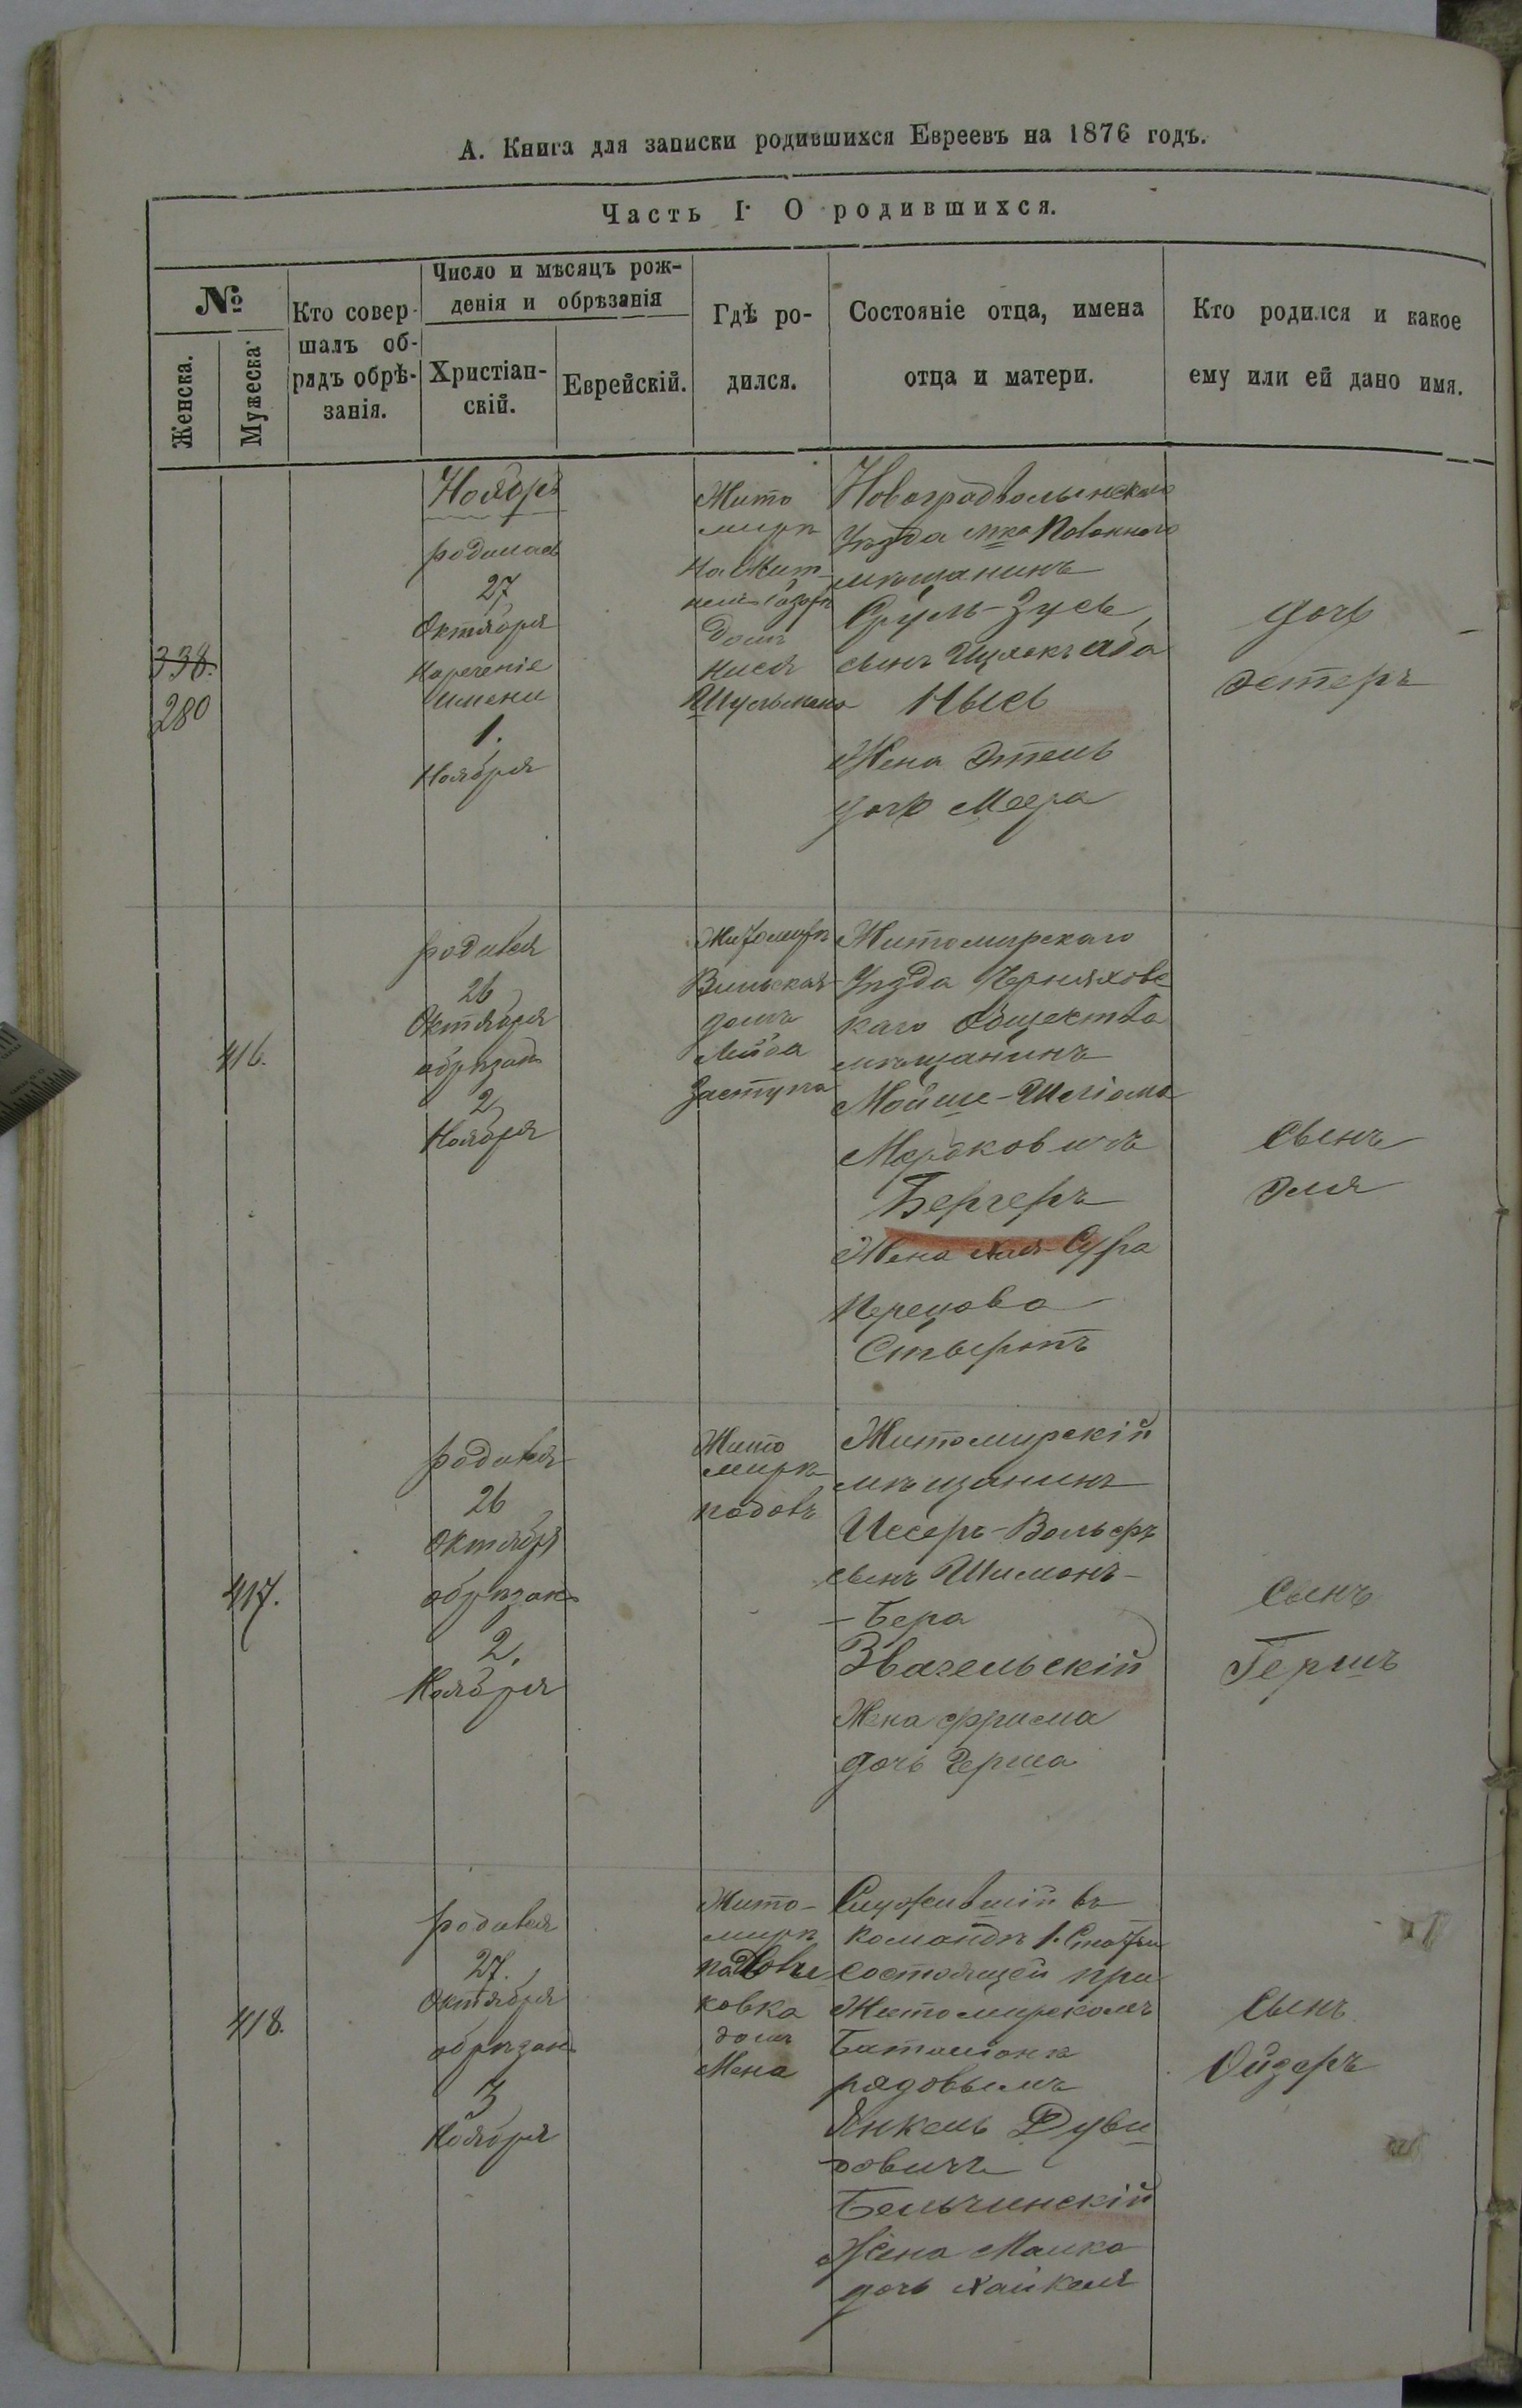 А. Книга для записки родившихся Евреевъ на 1876 годъ.
Часть I. О родившихся.
№
Женска.
Мужеска.
Кто совер-
шалъ об-
рядъ обрѣ-
занія.
Число и мѣсяцъ рож-
денія и обрѣзанія
Христіан-
скій.
Еврейскій.
Гдѣ ро-
дился.
Состояніе отца, имена
отца и матери.
Кто родился и какое
ему или ей дано имя.
338.
280
Ноябрь
родилась
27
Октября
Нареченіе
Имени
1.
Ноября
Жито
мирѣ
На Жит
немъ базарѣ
домъ
Нися
Шульмана
Новоградволынскаго
Уѣзда мка Полоннаго
мѣщанинъ
Сруль-Зусь
сынъ Ицзокъ Аба
Кысь
Жена Этель
дочь Меера
дочь
Эстеръ
416.
родился
26
Октября
обрѣзанъ
2
Ноября
Житомирѣ
Вильская
домъ
Лейба
Заступа
Житомирскаго
Уѣзда Черняховс
каго Общества
мѣщанинъ
Мойше-Шліома
Мордковичъ
Бергеръ
Жена Хая-Сура
Перецова
Сынъ
Эля
417.
родился
26
Октября
обрѣзанъ
2.
Ноября
Жито
мирѣ
Житомирскій
мѣщанинъ
Иссеръ-Вольфъ
сынъ Шимонъ-
-Бера
Звагельскій
Жена Фрима
дочь Герша
Сынъ
Гершъ
418.
родился
27.
Октября
обрѣзанъ
3
Ноября
Жито-
мирѣ
ковка
домъ
Мена
Служившій въ
командѣ 1. Статьи
состоящей при
Житомирскомъ
Баталионѣ
рядовымъ
Янкель Дуви
довичъ
Бельчинскій
Жена Малка
дочь Хайкеля
Сынъ
Ойзеръ